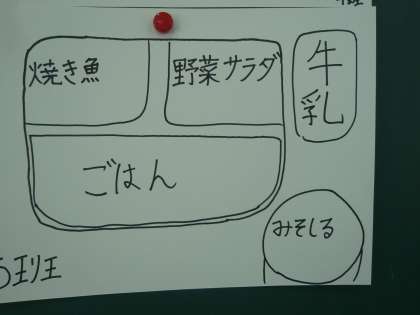 焼き魚
野菜サラダ
牛乳
ごはん
みそしる
5班